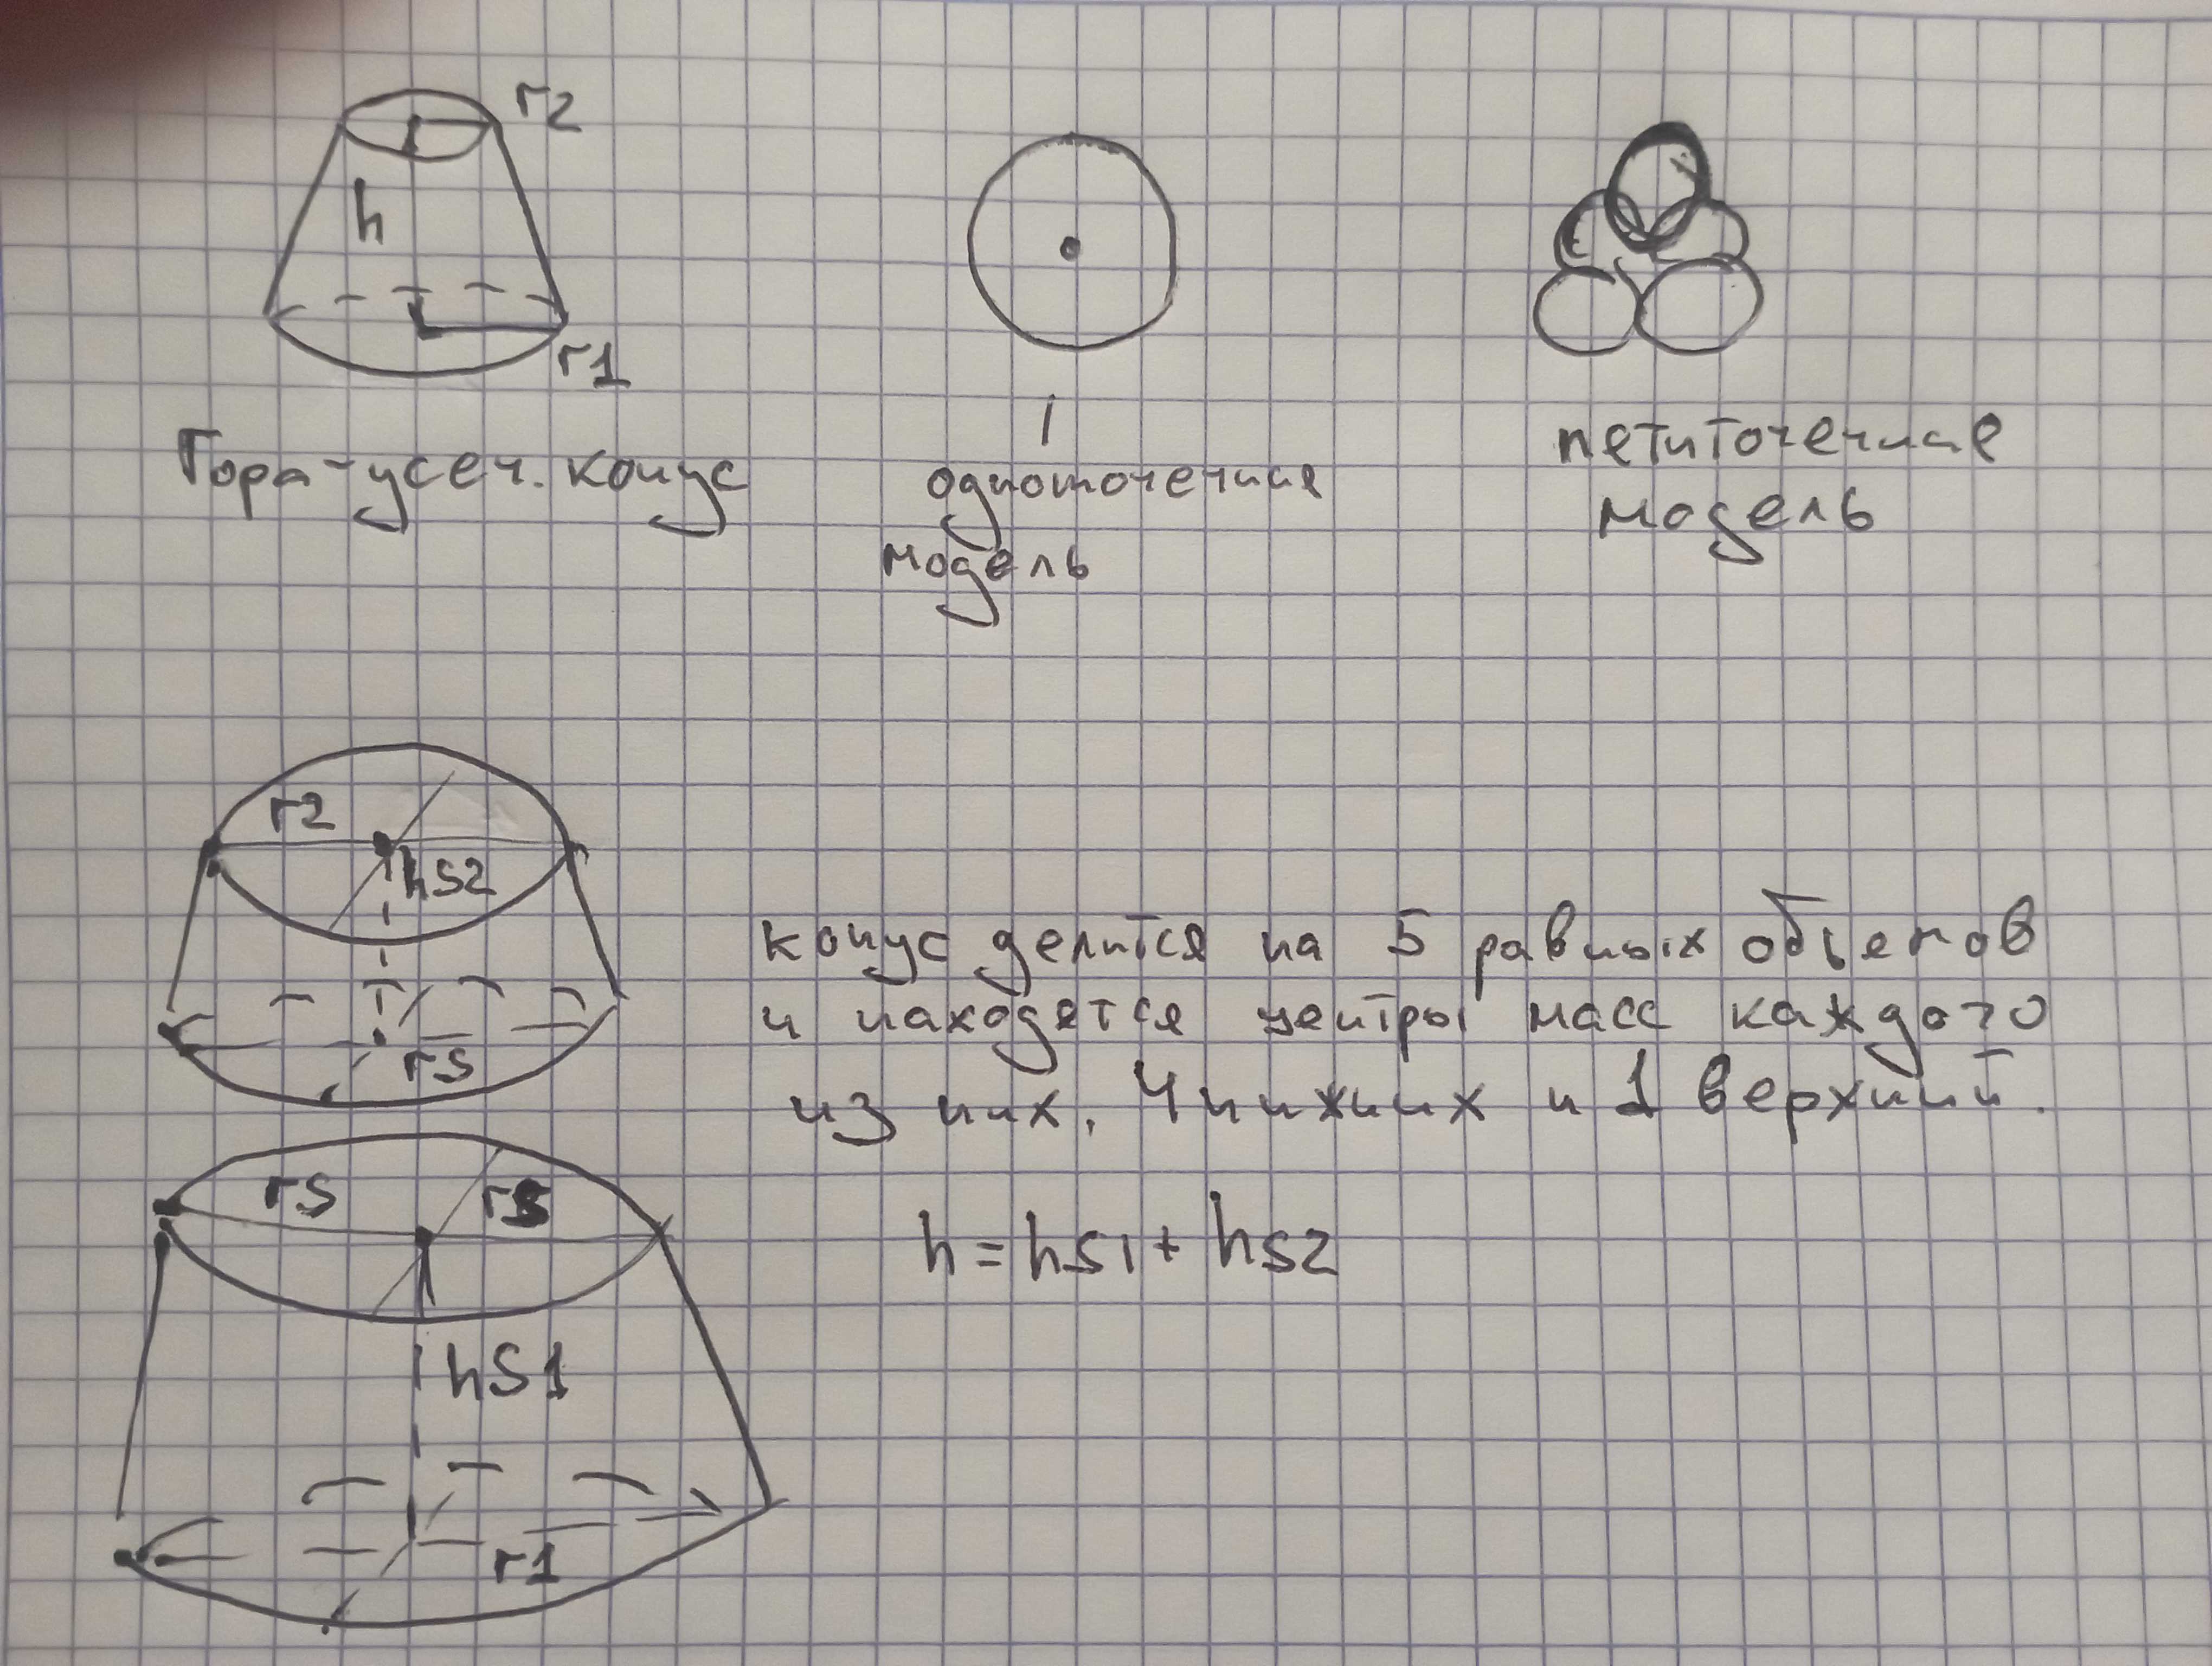 r2
h
r1
Гора-усеч. конус
одноточечная
модель
пятиточечная
модель
r2
hs2
rs
конус делится на 5 равных объемов
и находятся центры масс каждого
из них. 4 нижних и 1 верхний.
rs rs
h = hs1 + hs2
hs1
r1